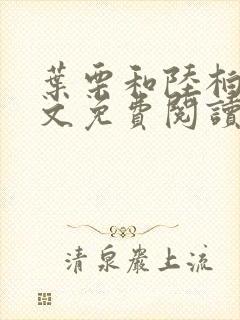 葉雲和陸柏
文免費閱讀
清泉巖上流